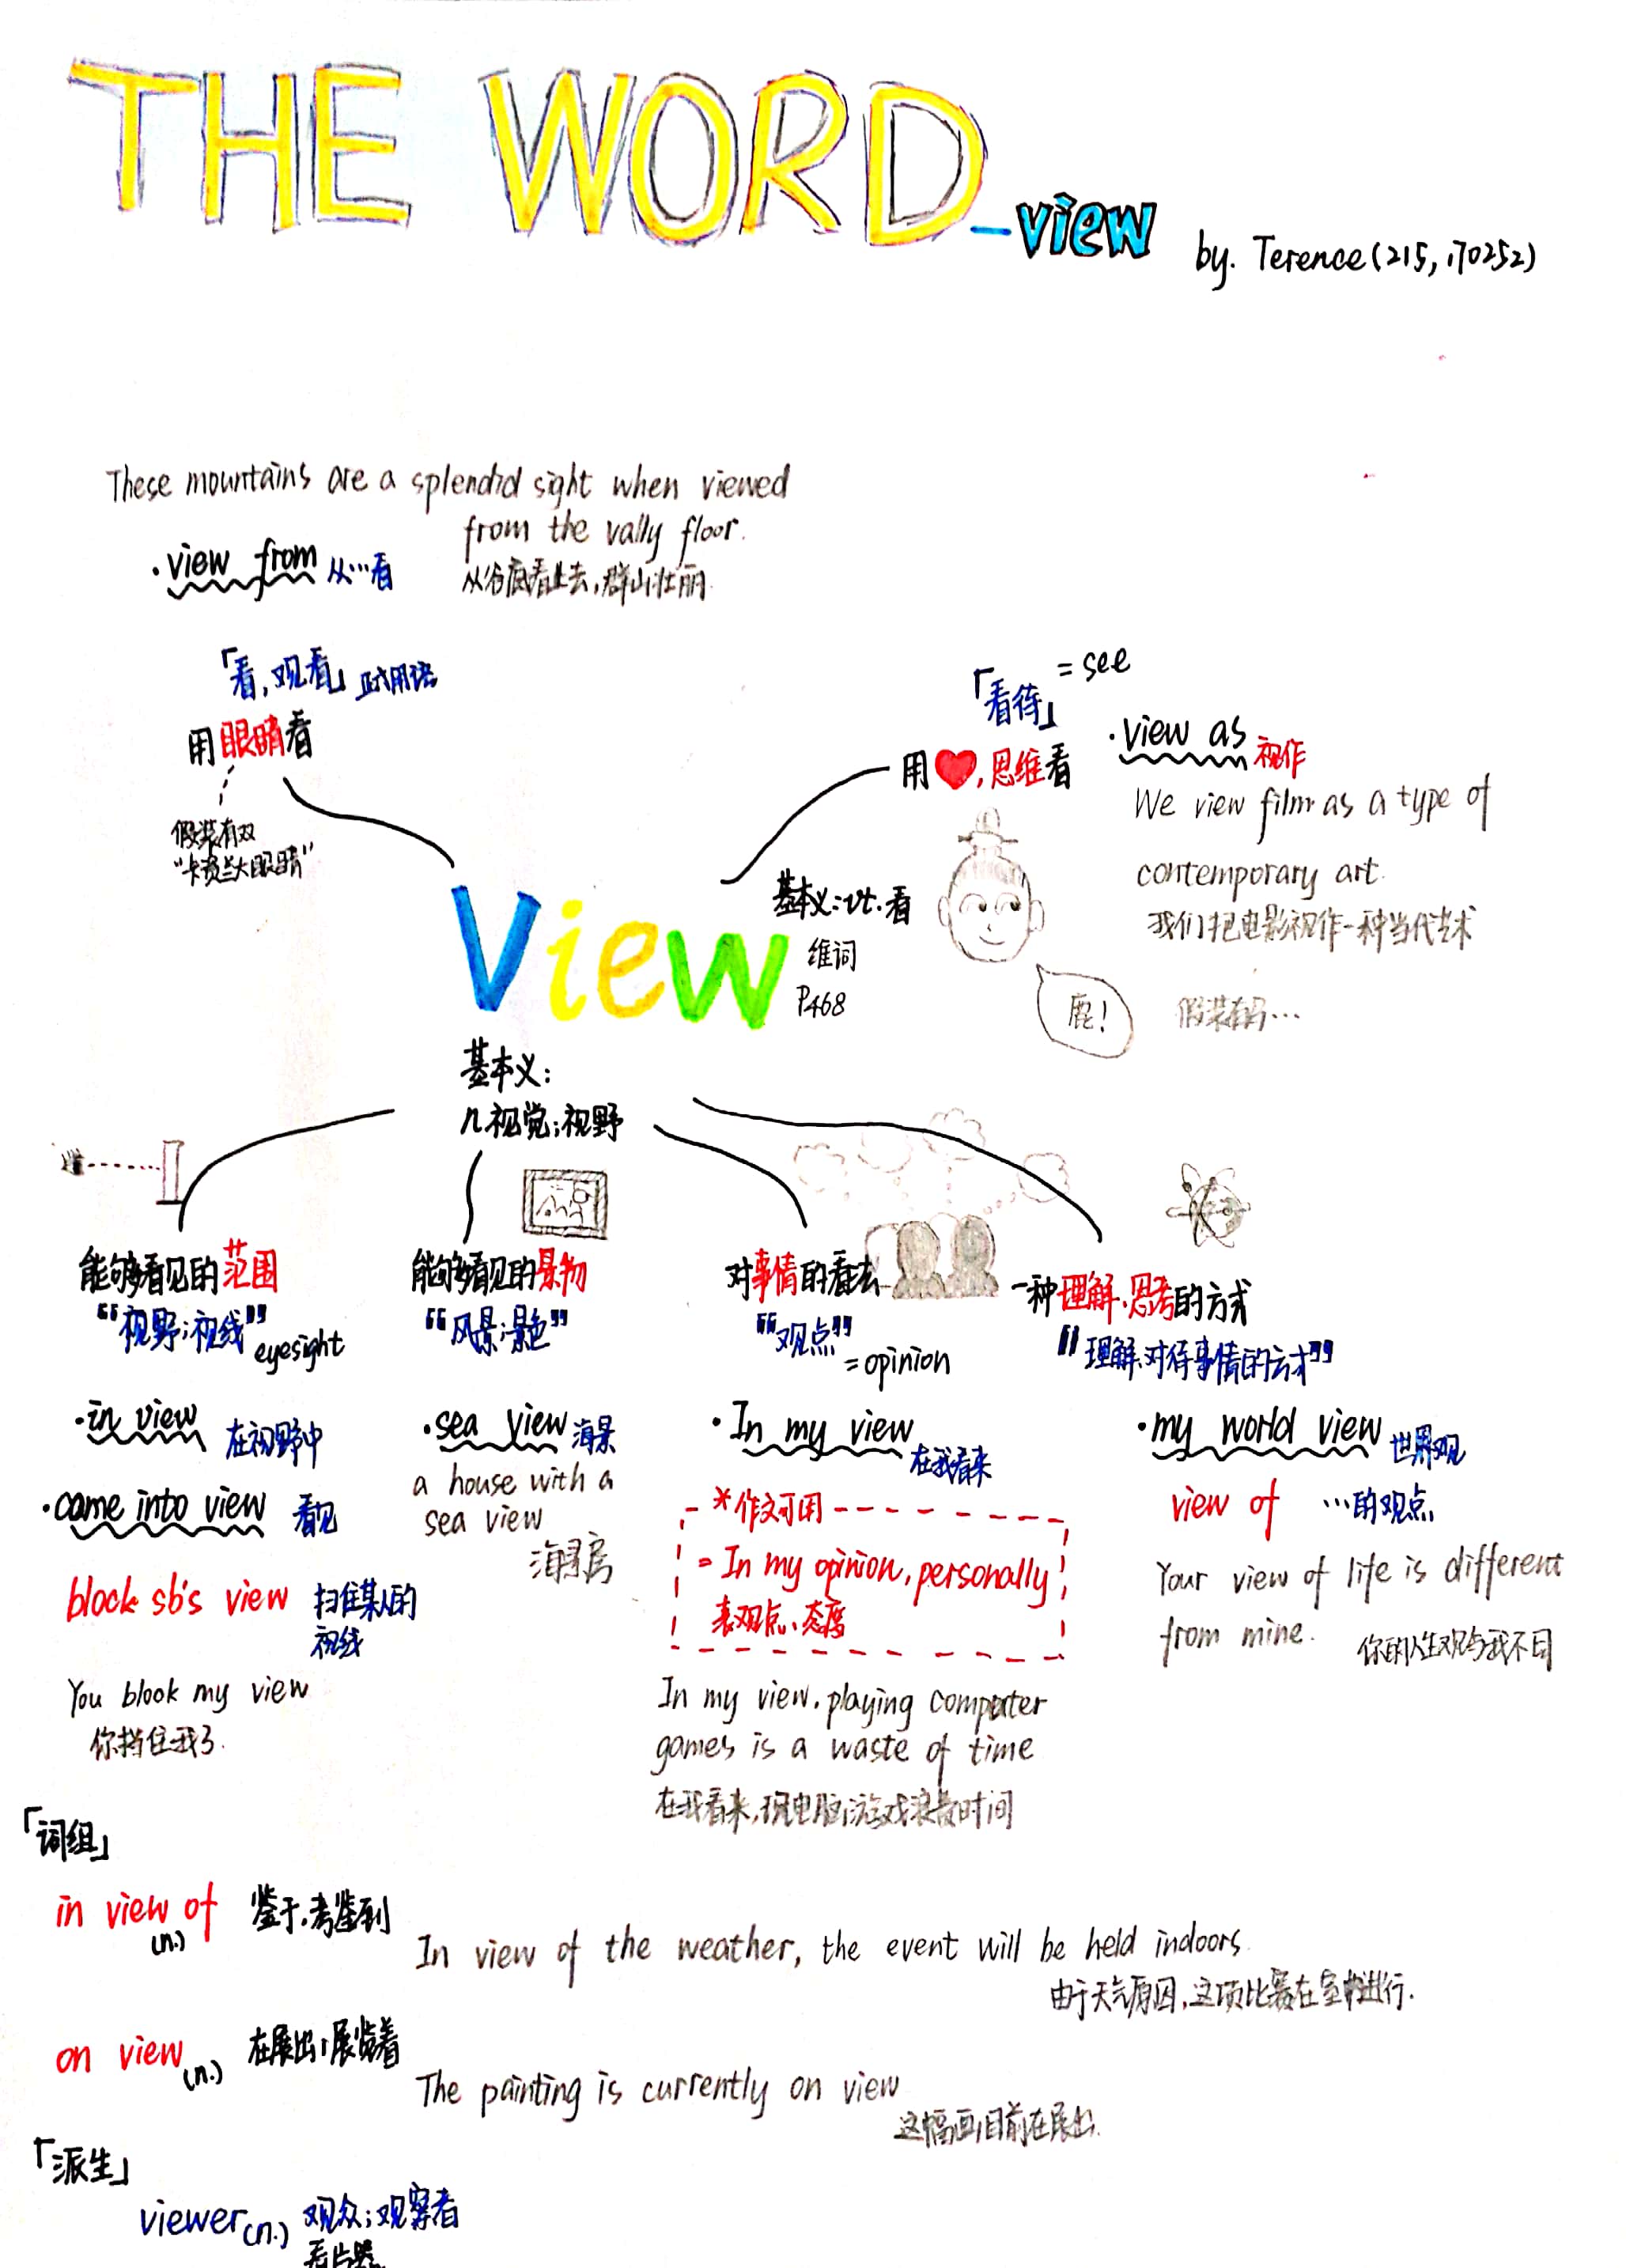 THE WORD -view
by. Terence(215, 170252)
These mountains are a splendid sight when viewed
from the vally floor.
从谷底看上去,群山壮丽.
·view from 从…看
「看,观看」正式用语
用眼睛看
假装有双
"卡姿兰大眼睛"
「看待」= see
用♥,思维看
·view as 视作
We view film as a type of
contemporary art.
我们把电影视作一种当代艺术
鹿!
假装有码…
View
基本义:vt.看
维词
P468
基本义:
n.视觉;视野
能够看见的范围
"视野;视线" eyesight
·in view 在视野中
·came into view 看见
block sb's view 挡住某人的
视线
You blook my view
你挡住我了.
能够看见的景物
"风景;景色"
·sea view 海景
a house with a
sea view
海景房
对事情的看法
"观点"
= opinion
·In my view 在我看来
*作文可用
= In my opinion, personally
表观点、态度
In my view, playing computer
games is a waste of time
在我看来,玩电脑游戏浪费时间
一种理解、思考的方式
"理解、对待事情的方式"
·my world view 世界观
view of …的观点
Your view of life is different
from mine. 你的人生观与我不同
「词组」
in view of (n.) 鉴于,考虑到
In view of the weather, the event will be held indoors.
由于天气原因,这项比赛在室内进行.
on view (n.) 在展出,展览着
The painting is currently on view
这幅画目前在展出.
「派生」
viewer(n.) 观众;观察者
看片器